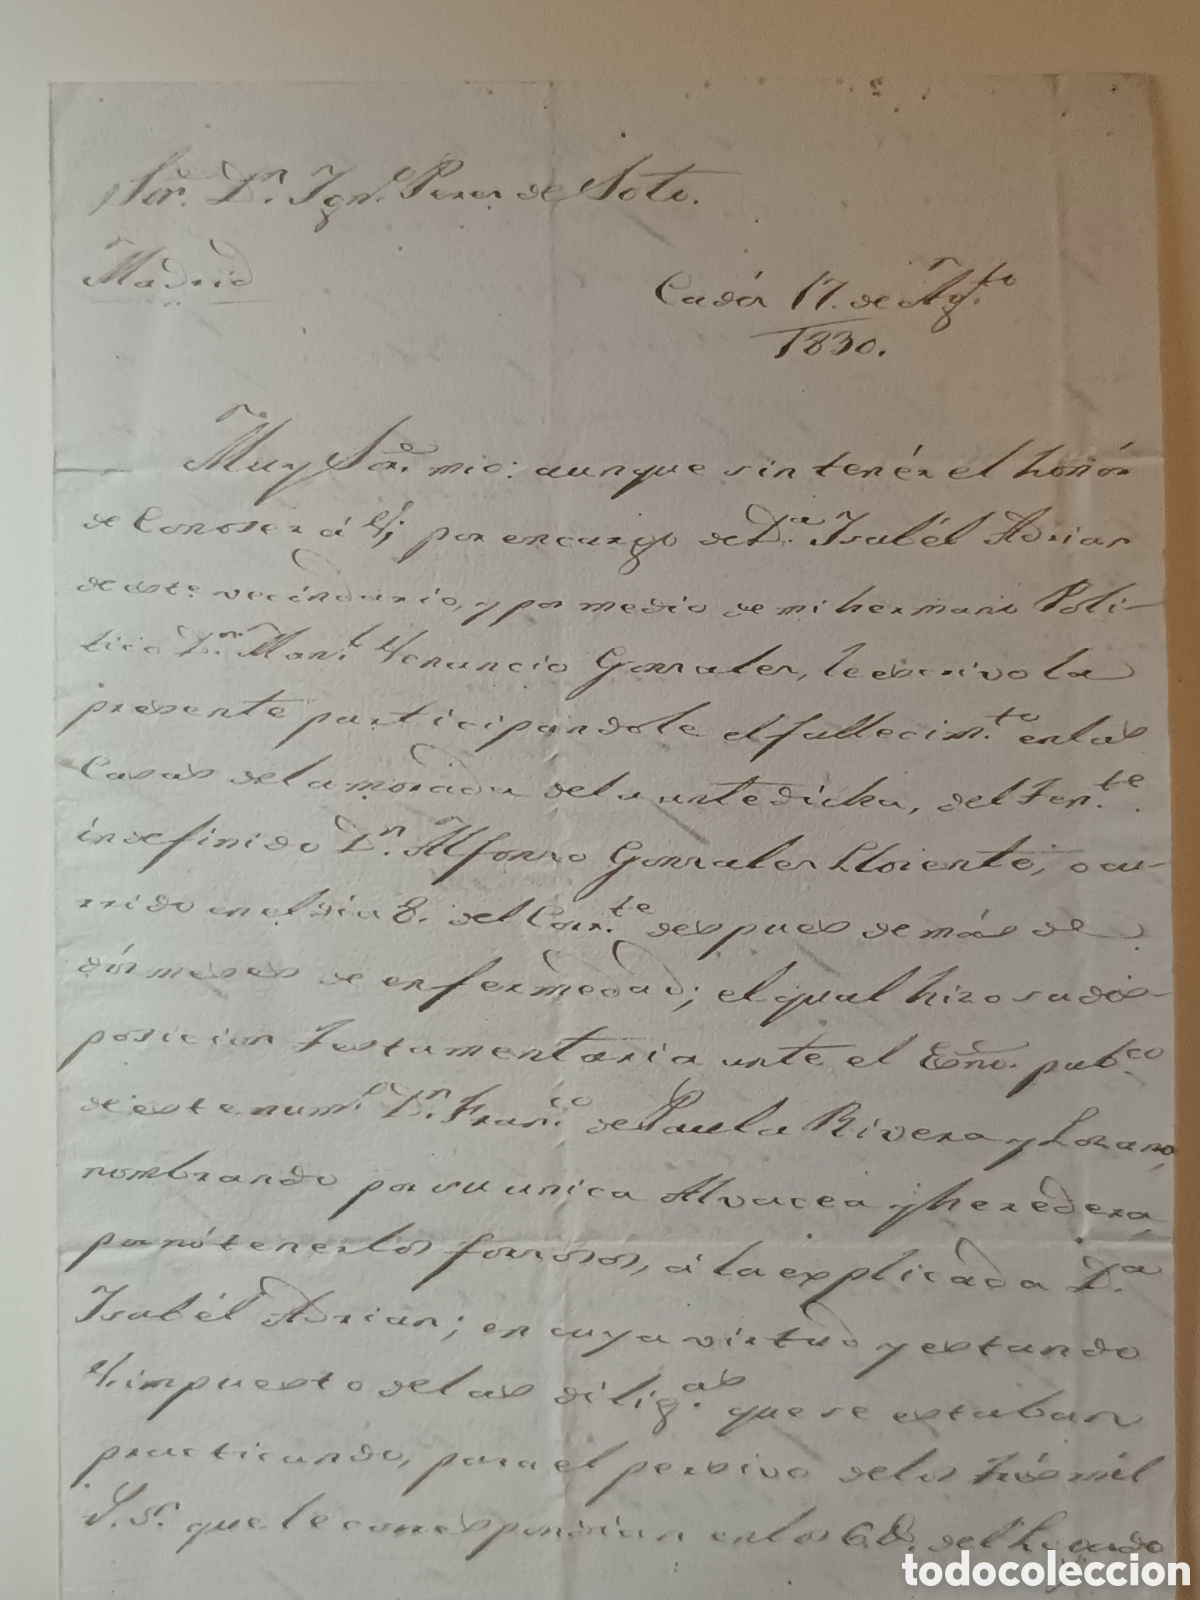 Sor. Dn. Ygno. Perez de Soto.
Madrid
Cadiz 17. de Agto.
1830.
Muy Sor. mio: aunque sin tenér el honór
de Conoser á V; por encargo de Da. Isabél Adrian
de este vecindario, y por medio de mi hermano Poli-
tico Dn. Manl. Gonzales, le escrivo la
presente participandole el fallecimto. en las
Casas de la morada de la antedicha, del Tente.
indefinido Dn. Alfonso Gonzales Llorente, ocu-
rrido en el dia 8. del Corrte. despues de más de
dós meses de enfermedad; el qual hizo su dis-
posicion Testamentaria ante el Esño. pubco.
de este numo. Dn. Franco. de Paula Rivera y Lozano,
nombrando por su unica Alvacea y heredera,
por nó tenerlos forzosos, á la explicada Da.
Isabél Adrian; en cuya virtud y estando
V. impuesto de las diligas. que se estaban
practicando, para el persivo de los trés mil
que le correspondian en los del Legado
todocoleccion